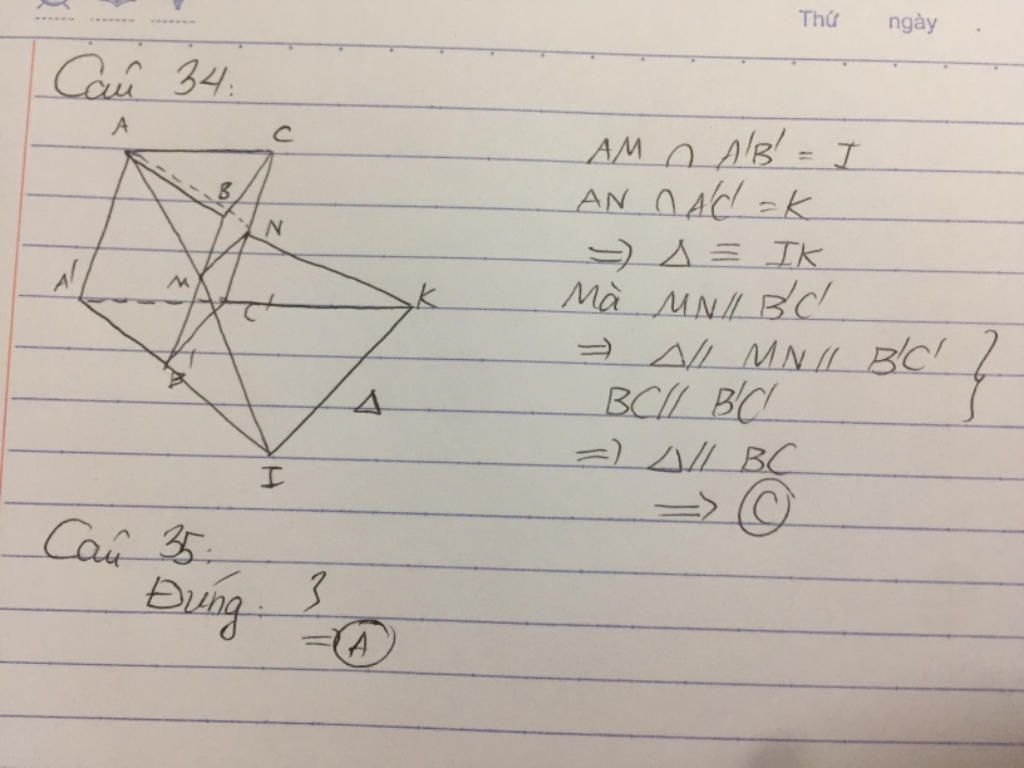 Thứ ngày .
Câu 34:
A
C
B
N
M
A'
C'
K
B'
Δ
I
AM ∩ A'B' = I
AN ∩ A'C' = K
=> Δ ≡ IK
Mà MN // B'C'
=> Δ // MN // B'C' }
BC // B'C'
=> Δ // BC
=> C
Câu 35:
Đứng. 3
= A